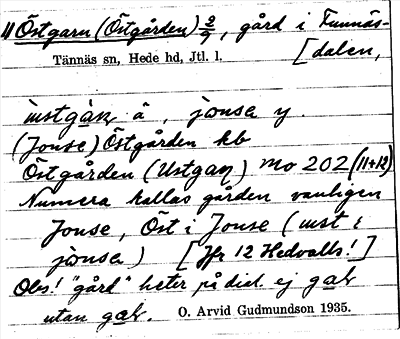 1) Östgarn (Östgården) 2/9, gård i Funnäs-
[dalen,
Tännäs sn, Hede hd, Jtl. l.
ìnstgàṇ å, jonsɐ y.
(Jonse) Östgården kb
Östgården (Ustgaṇ) mo 202 (11+12)
Numera kallas gården vanligen
Jonse, Öst i Jonse (
jonsɐ) [Jfr 12 Hedvalls!]
Obs! "gård" heter på dial. ej
utan . O. Arvid Gudmundson 1935.